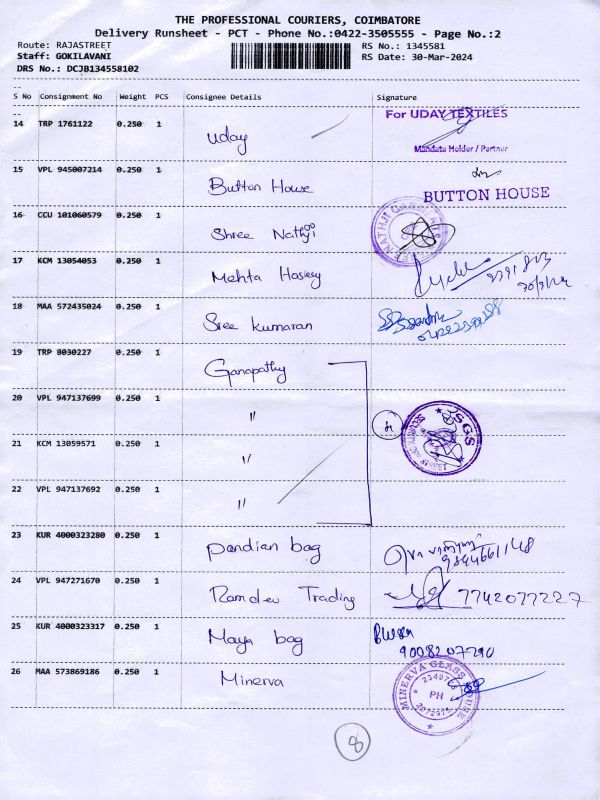 THE PROFESSIONAL COURIERS, COIMBATORE
Delivery Runsheet - PCT - Phone No.:0422-3505555 - Page No.:2
Route: RAJASTREET
RS No.: 1345581
Staff: GOKILAVANI
RS Date: 30-Mar-2024
DRS No.: DCJB134558102
S No Consignment No Weight PCS Consignee Details Signature
14 TRP 1761122 0.250 1 Uday For UDAY TEXTILES
Mandate Holder / Partner
15 VPL 945007214 0.250 1 Button House
BUTTON HOUSE
16 CCU 101060579 0.250 1 Shree Nathji
17 KCM 13054053 0.250 1 Mehta Hosiery
18 MAA 572435024 0.250 1 Sree Kumaran
19 TRP 8030227 0.250 1 Ganapathy
20 VPL 947137699 0.250 1 "
SGS
21 KCM 13059571 0.250 1 "
22 VPL 947137692 0.250 1 "
23 KUR 4000323280 0.250 1 pandian bag
9894661148
24 VPL 947271670 0.250 1 Ramdev Trading 7742077227
25 KUR 4000323317 0.250 1 Maya bag
9008207290
26 MAA 573869186 0.250 1 Minerva
MINERVA GLASS HOUSE
PH
8